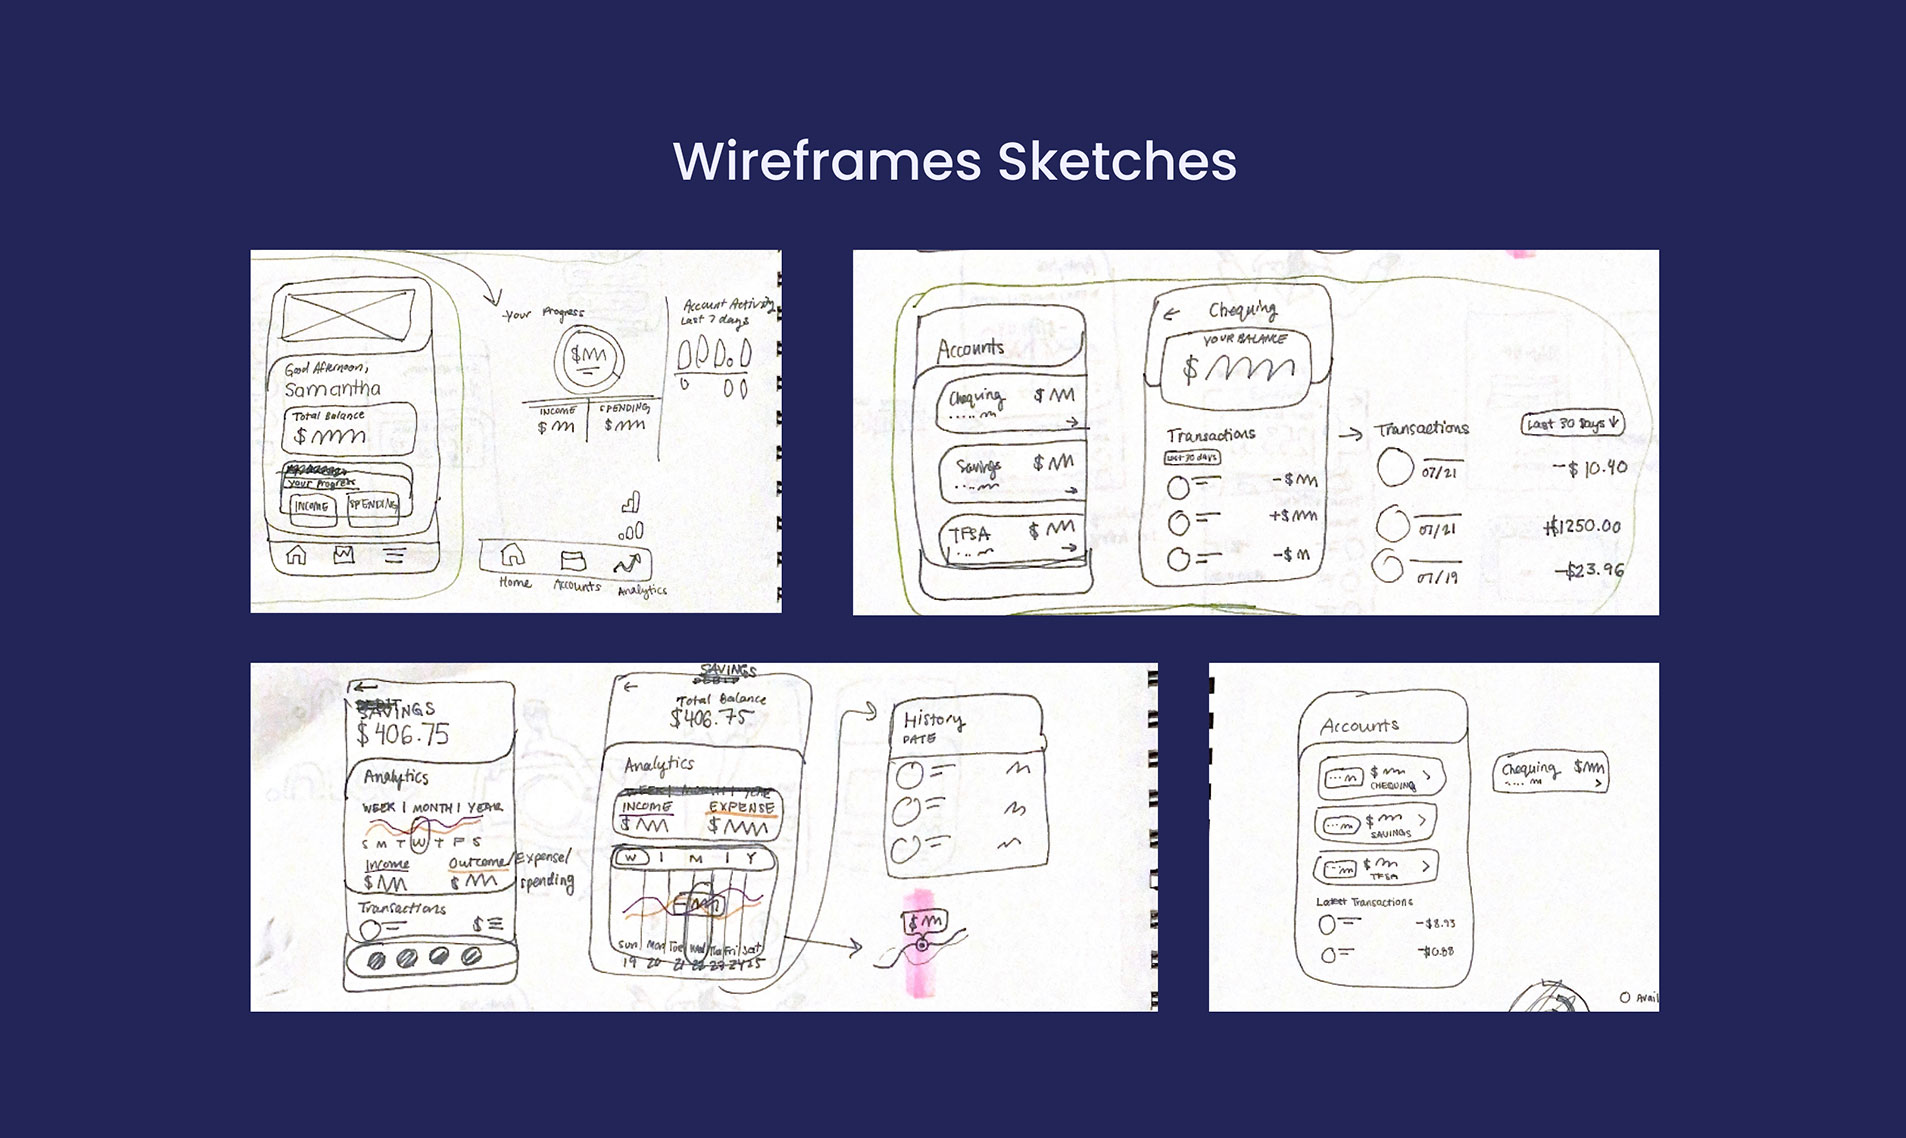 Wireframes Sketches
Good Afternoon,
Samantha
Total Balance
$
Your Progress
INCOME
SPENDING
Your Progress
$
INCOME
SPENDING
$
$
Account Activity
Last 7 days
Home
Accounts
Analytics
Accounts
Chequing
$
Savings
$
TFSA
$
Chequing
YOUR BALANCE
$
Transactions
Last 30 days
-$
+$
-$
Transactions
Last 30 Days
07/21
-$10.40
07/21
+$1250.00
07/19
-$23.96
SAVINGS
$406.75
Analytics
WEEK | MONTH | YEAR
S M T W T F S
Income
Outcome/Expense/
spending
$
$
Transactions
$
SAVINGS
Total Balance
$406.75
Analytics
INCOME
EXPENSE
$
$
W | M | Y
Sun Mon Tue Wed Thu Fri Sat
19 20 21 22 23 24 25
History
DATE
$
Accounts
$
CHEQUING
$
SAVINGS
$
TFSA
Latest Transactions
-$8.93
-$0.88
Chequing
$
Avail